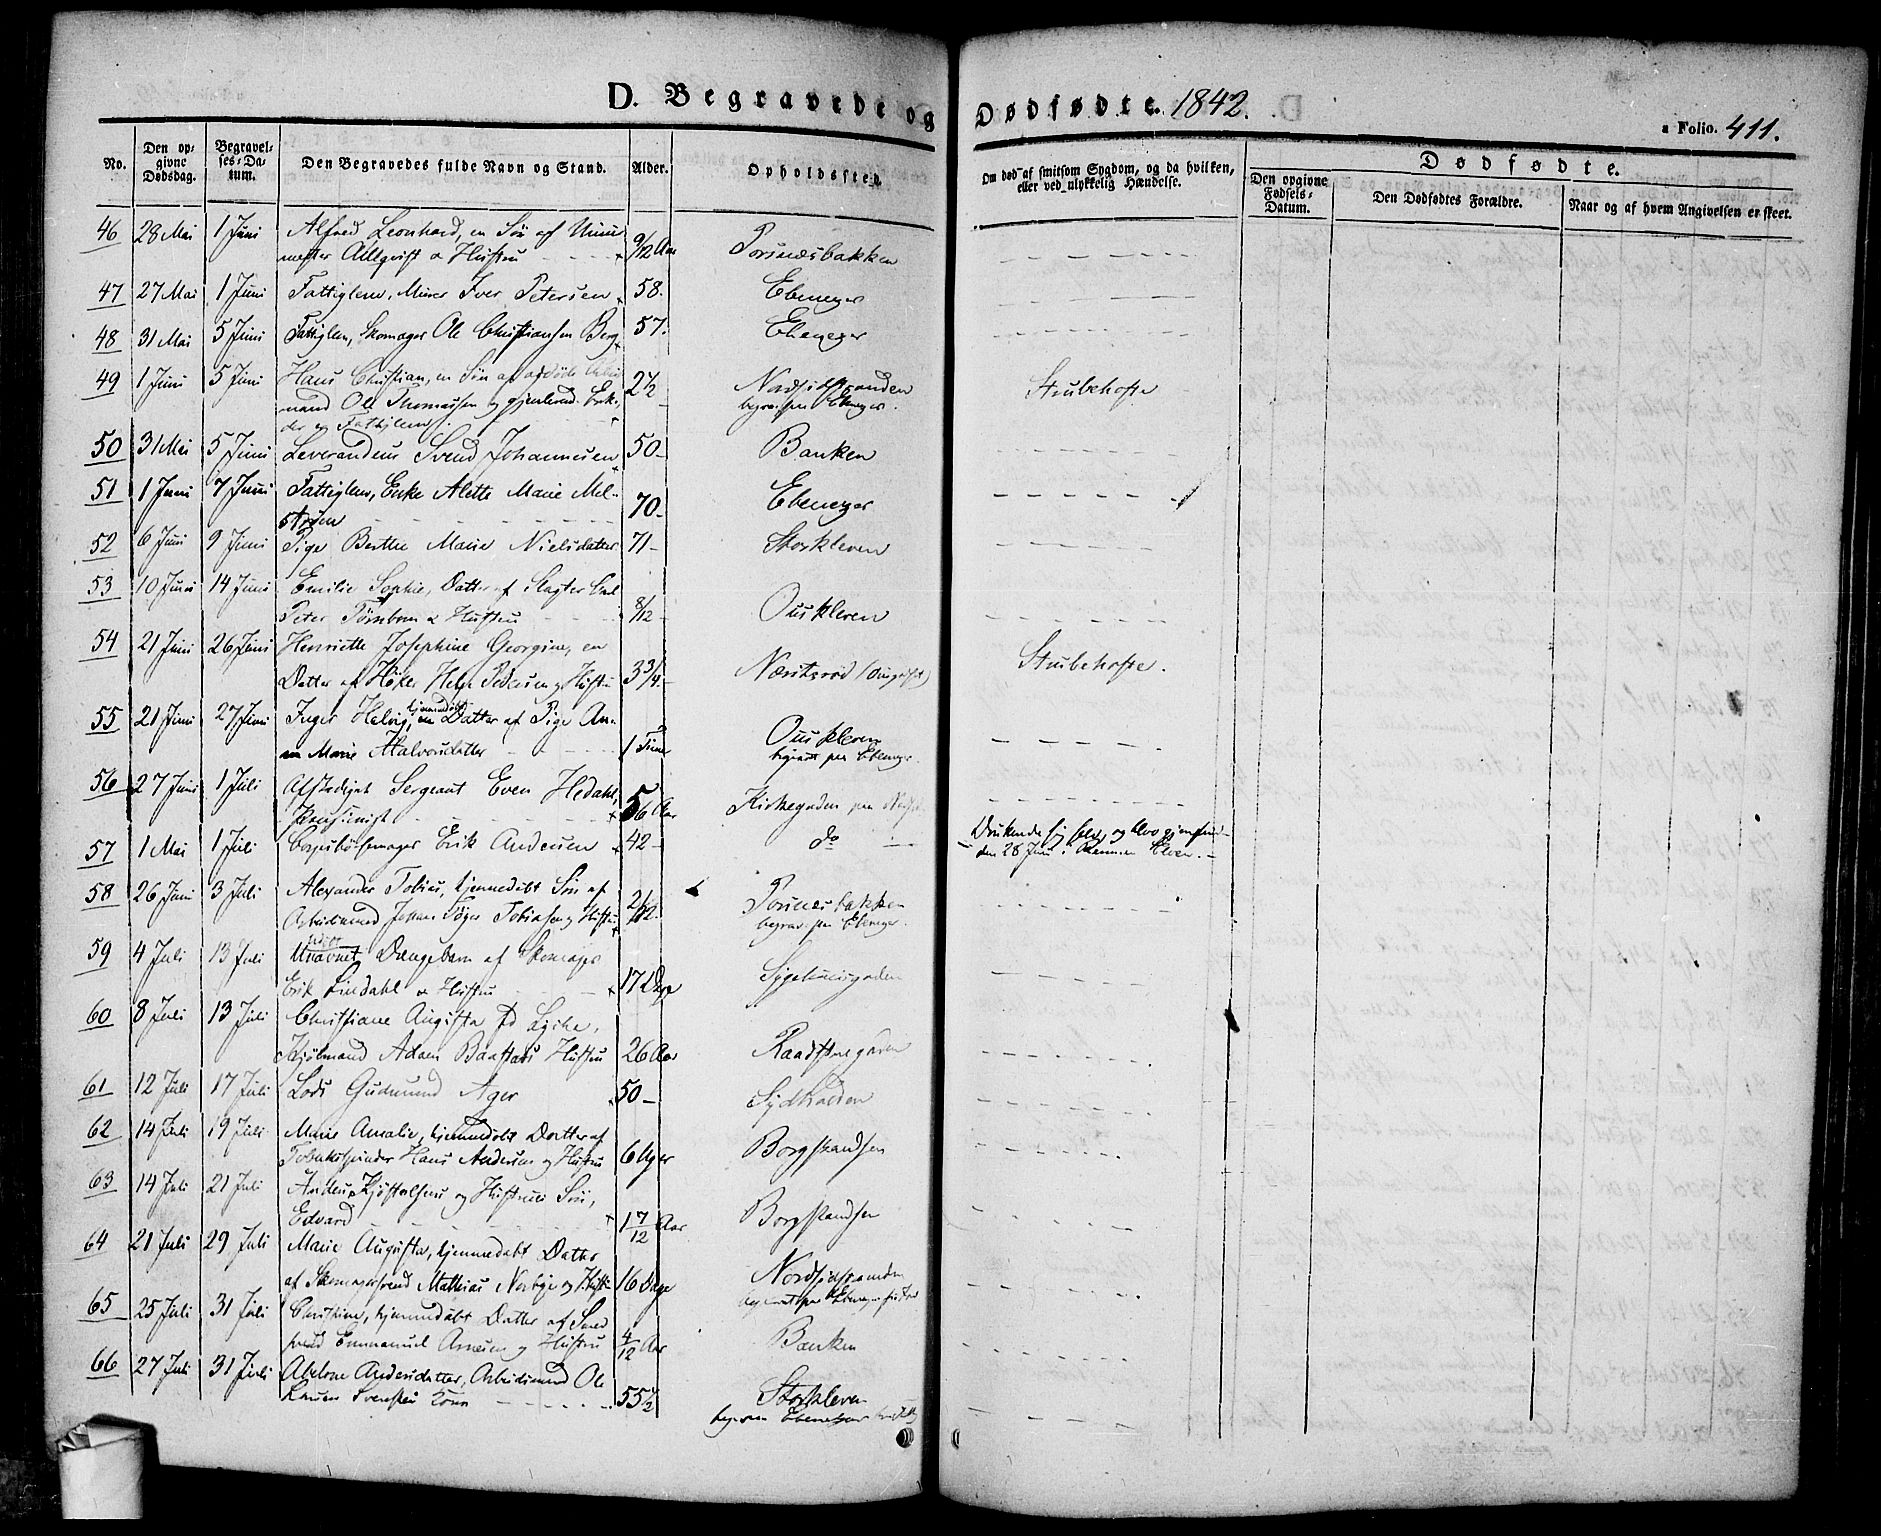 D. Begravede og Dødfødte. 1842.
a Folio. 411.
No.
Den op-
givne
Dødsdag.
Begravel-
ses-Da-
tum.
Den Begravedes fulde Navn og Stand.
Alder.
Opholdssted.
Om død af smitsom Sygdom, og da hvilken,
eller ved ulykkelig Hændelse.
Dødfødte.
Den opgivne
Fødsels-
Datum.
Den Dødfødtes Forældre.
Naar og af hvem Angivelsen er skeet.
46 28 Mai 1 Juni Alfred Leonhard, en Søn af
mester Allqvist & Hustru 9/12 Aar Torsnæsbakken
47 27 Mai 1 Juni Fattiglem, Murer Iver Petersen 58. Ebenezer
48 31 Mai 5 Juni Fattiglem, Skomager Ole Christiansen Berg 57. Ebenezer
49 1 Juni 5 Juni Hans Christian, en Søn af afdøde Arbeids-
mand Ole Thomassen og gjenlevend. Enke, 2 1/2 Nordsidstranden Strubehoste
der er Fattiglem. begrav. paa Ebenezer.
50 31 Mai 5 Juni Leverandeur Svend Johannesen 50 Banken
51 1 Juni 7 Juni Fattiglem, Enke Alette Marie Mel-
strøm 70 Ebenezer
52 6 Juni 9 Juni Pige Berthe Marie Nielsdatter 71 Storkleven
53 10 Juni 14 Juni Emilie Sophie, Datter af Slagter Carl
Peter Törnbom & Hustru 8/12 Ouskleven
54 21 Juni 26 Juni Henriette Josephine Georgine, en
Datter af Høker Helge Pedersen og Hustru 3 3/4 Strubehoste.
55 21 Juni 27 Juni Inger Helvig, hjemmedøbt en Datter af Pige An-
ne Marie Halvorsdatter 1 Time Ouskleven
begravet paa Ebenezer.
56 27 Juni 1 Juli Afskediget Sergeant Even Hedahl,
Pensionist 56 Aar Kirkegaden paa
57 1 Mai 1 Juli Corpsbøssemager Erik Andersen 42 do Druknede sig selv, og blev gjenfun-
den 28 Juni i Elven.
58 26 Juni 3 Juli Alexander Tobias, hjemmedøbt Søn af
Arbeidsmand Johan Tøger Tobiassen og Hustru 2/12 Torsnæsbakken
begrav. paa Ebenezer.
59 4 Juli 13 Juli Unavnet Drengebarn af Skomager
Erik Lindahl & Hustru 17 Dage Sygehuusgaden
60 8 Juli 13 Juli Christiane Augusta fd Lyche,
Kjøbmand Adam Baastads Hustru 26 Aar Raadstuegaden
61 12 Juli 17 Juli Lods Gudmund Ager 50 Sydhalden
62 14 Juli 19 Juli Marie Amalie, hjemmedøbt Datter af
Tobaksspinder Hans Andersen og Hustru 6 Uger Borgstrandsen
63 14 Juli 21 Juli Anders Kjøstelsens og Hustrues Søn,
Edvard 1 7/12 Aar Borgstrandsen
64 21 Juli 29 Juli Marie Augusta, hjemmedøbt Datter
af Skomagersvend Mathias Norbye og Hustru 16 Dage Nordsidstranden
begravet paa Ebenezer
65 25 Juli 31 Juli Christine, hjemmedøbt Datter af Smed
svend Emmanuel Arnesen og Hustru 4/12 Aar Banken
66 27 Juli 31 Juli Abelone Andersdatter, Arbeidsmand Ole
Larsen Svenskes Kone 55 1/2 Storkleven
begraven Ebenezer